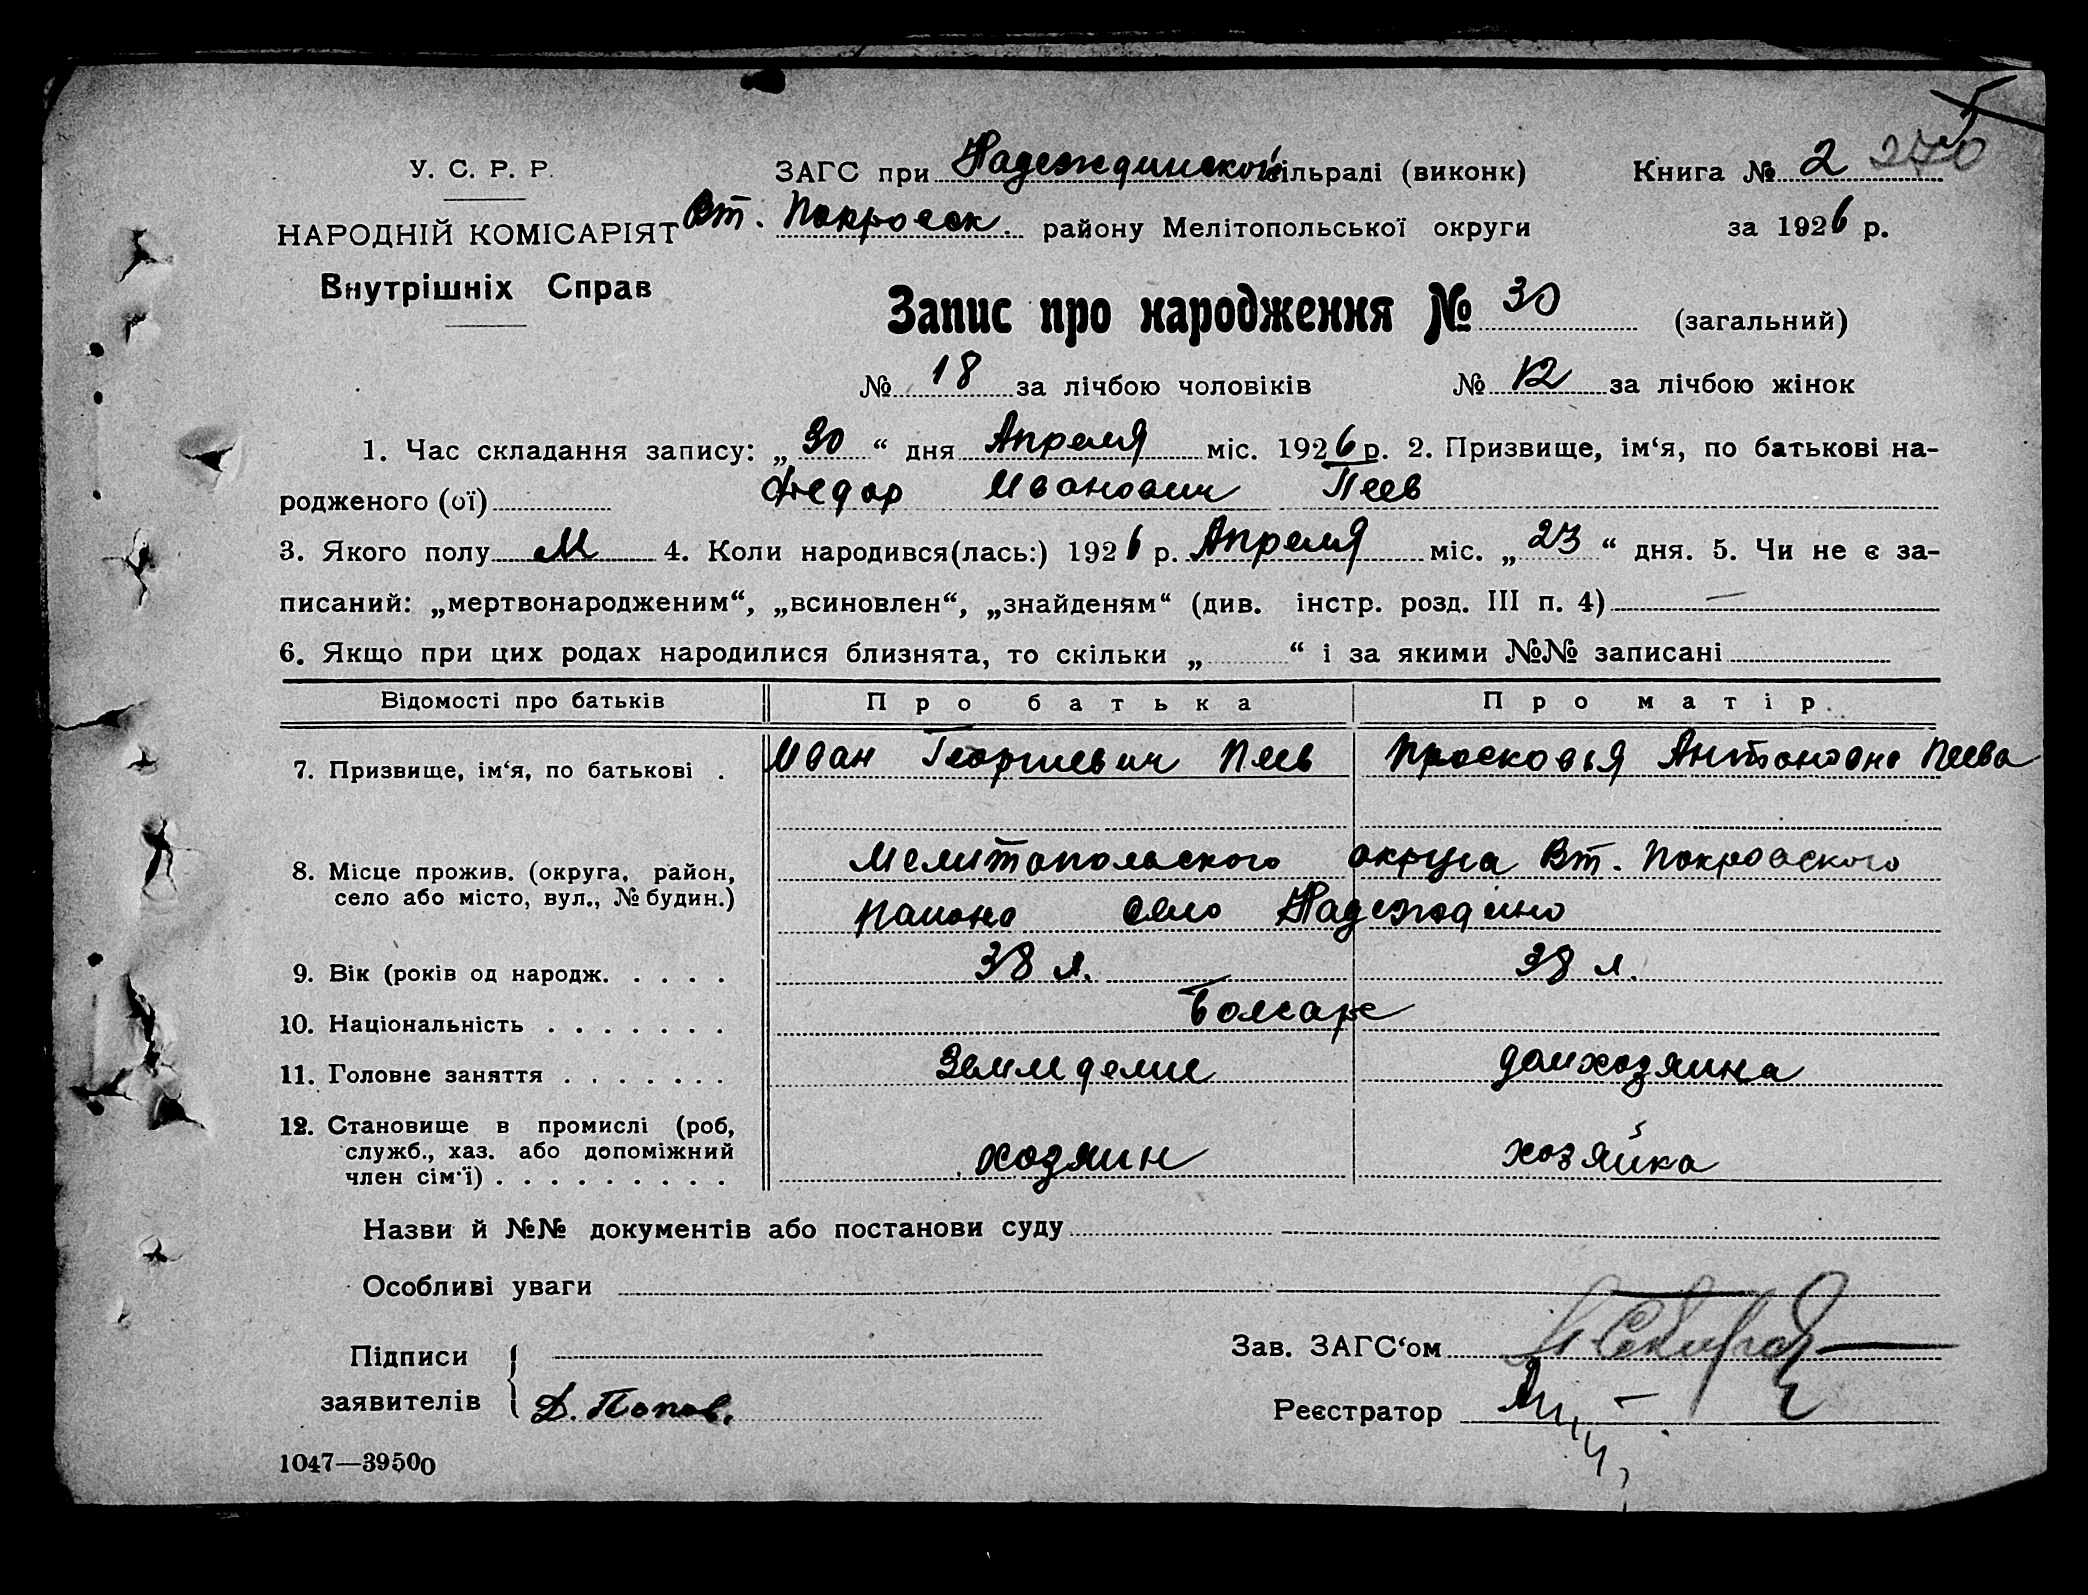 У. С. Р. Р.
НАРОДНІЙ КОМІСАРІЯТ
Внутрішніх Справ
ЗАГС при Надеждинской сільраді (виконк)
Вт. Покровск. району Мелітопольської округи
Книга № 2 270
за 1926 р.
Запис про народження № 30 (загальний)
№ 18 за лічбою чоловіків № 12 за лічбою жінок
1. Час складання запису: „ 30 “ дня Апреля міс. 1926 р. 2. Призвище, ім‘я, по батькові на-
родженого (ої) Федор Иванович Пеев
3. Якого полу М 4. Коли народився(лась:) 1926 р. Апреля міс. „ 23 “ дня. 5. Чи не є за-
писаний: „мертвонародженим“, „всиновлен“, „знайденям“ (див. інстр. розд. III п. 4) —
6. Якщо при цих родах народилися близнята, то скільки „ “ і за якими №№ записані
Відомості про батьків Про батька Про матір.
7. Призвище, ім‘я, по батькові . Иван Георгиевич Пеев Просковья Антоновна Пеева
8. Місце прожив. (округа, район, Мелитопольского округа Вт. Покровского
село або місто, вул., № будин.) района село Надеждино
9. Вік (років од народж. . . . . 38 л. 38 л.
10. Національність . . . . . . . Болгаре
11. Головне заняття . . . . . . . Земледелие домхозяина
12. Становище в промислі (роб,
служб., хаз. або допоміжний хозяин хозяйка
член сім‘ї) . . . . . . . . .
Назви й №№ документів або постанови суду
Особливі уваги
Підписи
заявителів Д. Попов.
Зав. ЗАГС‘ом
Реєстратор
1047—39500